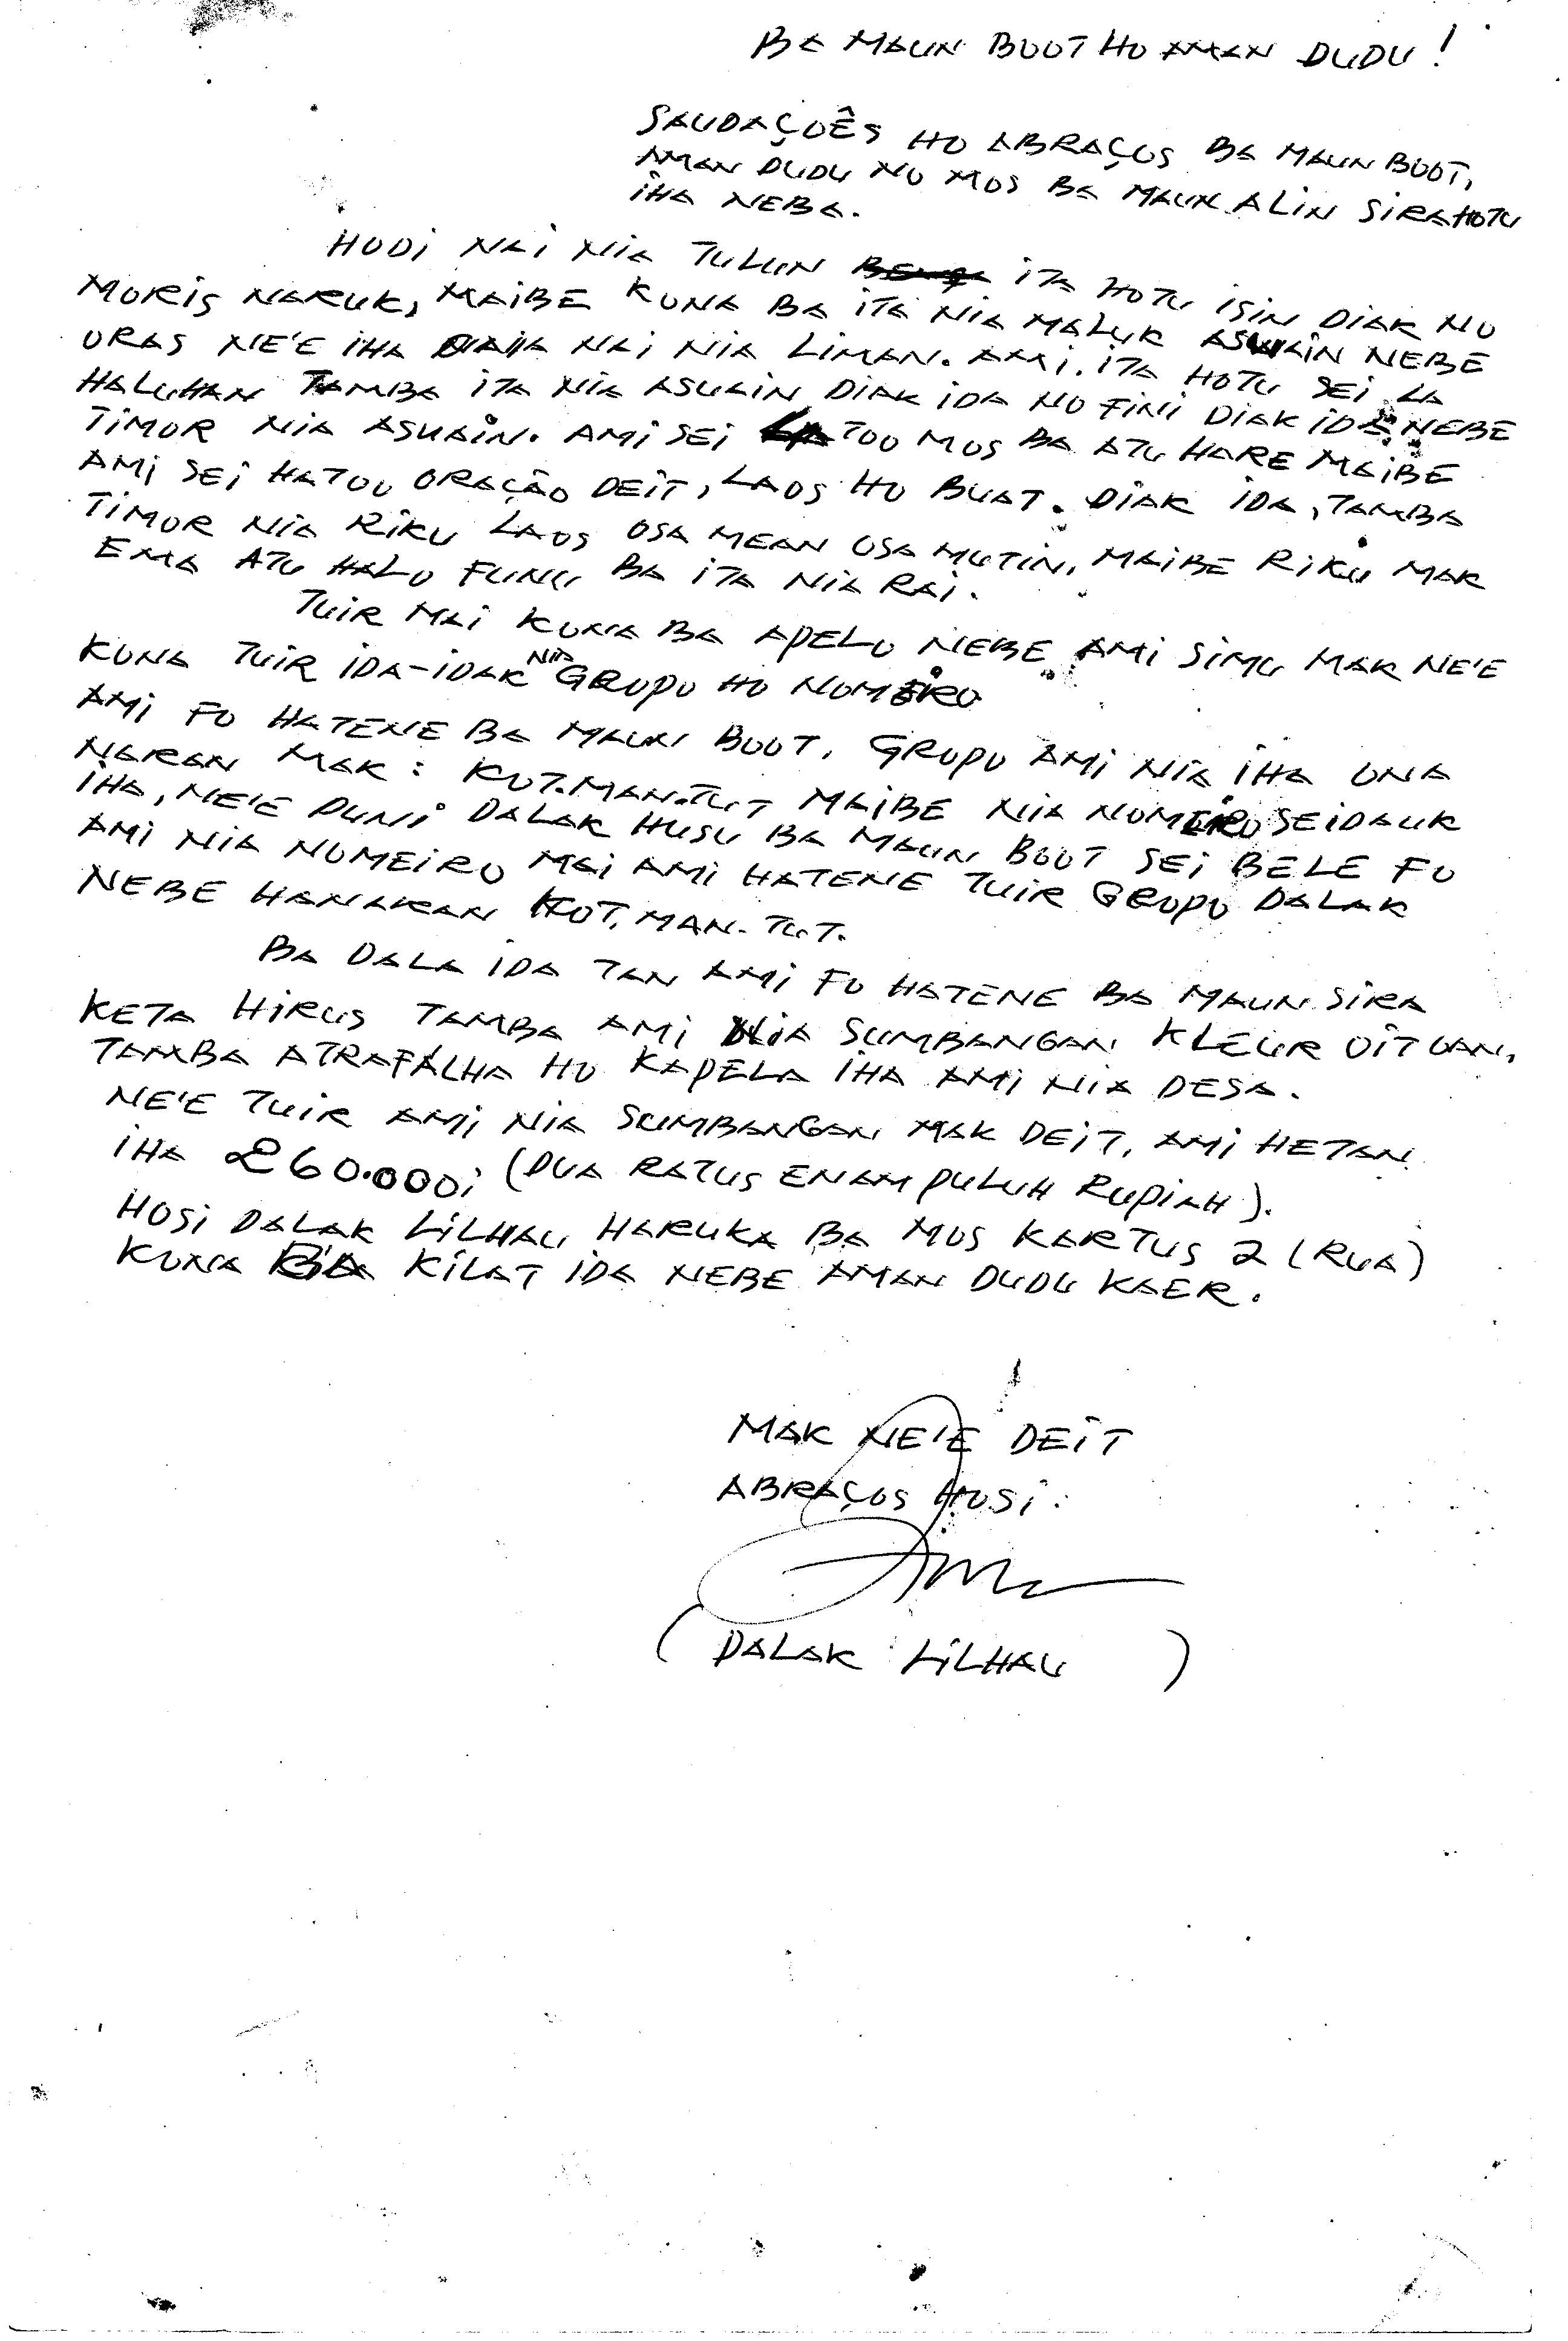 BA MAUN BOOT HO AMAN DUDU !
SAUDAÇOÊS HO ABRAÇOS BA MAUN BOOT,
AMAN DUDU NO MOS BA MAUN ALIN SIRA HOTU
IHA NEBA.
HODI NAI NIA TULUN ITA HOTU ISIN DIAK NO
MORIS NARUK, MAIBE KONA BA ITA NIA MALUK ASUAIN NEBE
ORAS NE'E IHA NAI NIA LIMAN. AMI. ITA HOTU SEI LA
HALUHAN TAMBA ITA NIA ASUAIN DIAK IDA NO FINI DIAK IDA NEBE
TIMOR NIA ASUAIN. AMI SEI TOO MOS BA ATU HARE MAIBE
AMI SEI HATOU ORAÇÃO DEIT, LAOS HO BUAT. DIAK IDA, TAMBA
TIMOR NIA RIKU LAOS OSA MEAN OSA MUTIN, MAIBE RIKU MAK
EMA ATU HALO FUNU BA ITA NIA RAI.
TUIR MAI KONA BA APELO NEBE AMI SIMU MAK NE'E
KONA TUIR IDA-IDAK NIA GRUPO HO NOMERO
AMI FO HATENE BA MAUN BOOT. GRUPO AMI NIA IHA ONA
NARAN MAK : KOT.MAN.TUT MAIBE NIA NOMERO SEIDAUK
IHA, NE'E DUNI DALAK HUSU BA MAUN BOOT SEI BELE FO
AMI NIA NOMEIRO MAI AMI HATENE TUIR GRUPO DALAK
NEBE HANARAN KOT. MAN. TUT.
BA DALA IDA TAN AMI FO HATENE BA MAUN SIRA
KETA HIRUS TAMBA AMI NIA SUMBANGAN KLEUR OITOAN,
TAMBA ATRAPALHA HO KAPELA IHA AMI NIA DESA.
NE'E TUIR AMI NIA SUMBANGAN MAK DEIT, AMI HETAN
IHA 260.000i (DUA RATUS ENAM PULUH RUPIAH).
HOSI DALAK LILHAU HARUKA BA MOS KARTUS 2 (RUA)
KONA BA KILAT IDA NEBE AMAN DUDU KAER.
MAK NE'E DEIT
ABRAÇOS HOSI :
( DALAK LILHAU )